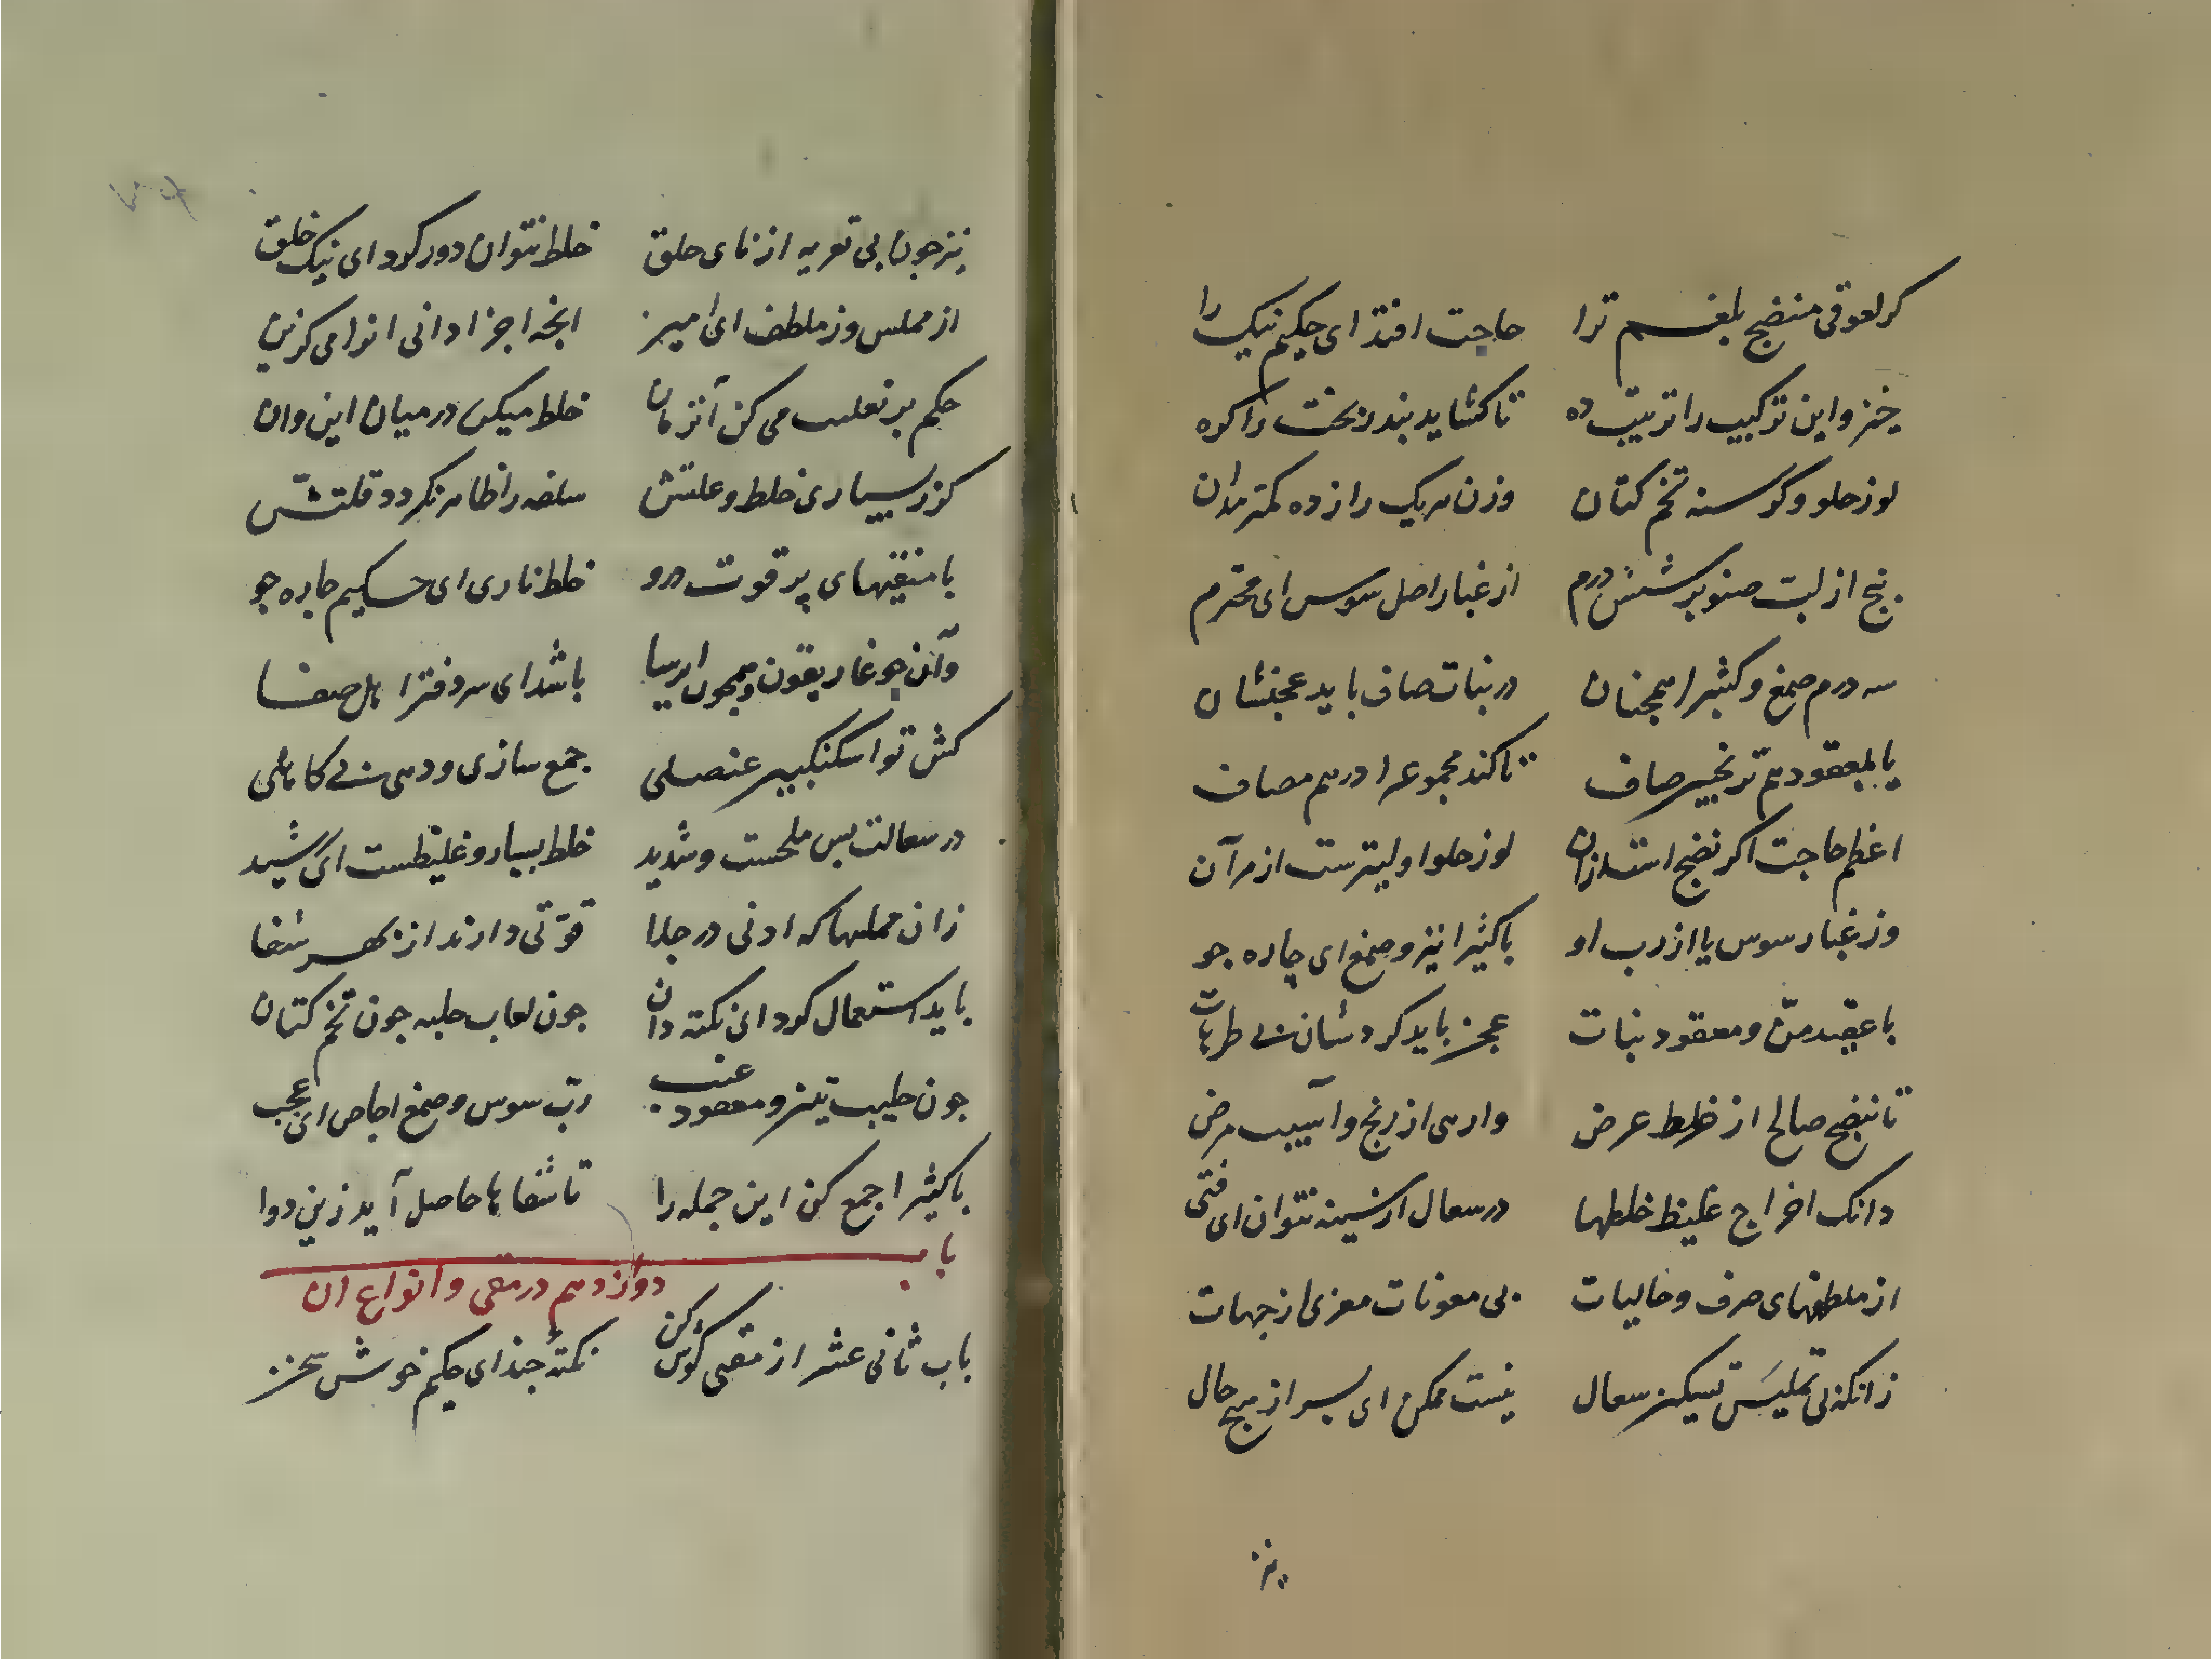 کر لعوقی منضج بلغم ترا حاجت افتد ای حکیم نیک را
خیز و این ترکیب را ترتیب ده تا کشاید بند بخت را کره
لوز حلو و کرسنه تخم کتان وزن هریک را ز ده کمتر مدان
پنج از لب صنوبر شش درم از غبار اصل سوس ای محترم
سه درم صمغ و کثیرا همچنان در نبات صاف باید عجنشان
یا بمعقود هم ترنجبین صاف تا کند مجموعه را در هم مصاف
اعظم حاجت اکر نضج است ازان لوز حلو اولیترست از مر آن
وز غبار سوس یا از رب او با کثیرا نیز و صمغ ای چاره جو
با عقید من و معقود نبات عجن باید کردشان بی طرهات
تا بنضج صالح از خلط عرض وارهی از رنج و آسیب مرض
دانک اخراج غلیظ خلطها در سعال از سینه نتوان ای فتی
از ملطفهای صرف و حالیات بی معونات مغری از جهات
زانکه بی تملیس تسکین سعال نیست ممکن ای پسر از هیچ حال
نیز
نیز جون بی تغریه از نای حلق خلط نتوان دور کرد ای نیک خلق
از مملس وز ملطف ای امیر انجه اجزا دانی انرا می کزین
حکم بر تغلیب می کن آنزمان خلط میکن در میان این وان
کز بسیاری خلط و علتش سلفه را ظاهر نکردد قلتش
با منقیهای پر قوت درو خلط ناری ای حکیم چاره جو
وآن جو غاریقون و همچون ایرسا باشد ای سر دفتر اهل صفا
کش تو اسکنکبین عنصلی جمع سازی و دهی بی کاهلی
در سعالت بس ملحست و شدید خلط بسیار و غلیظست ای رشید
زان مملسها که ادنی در جلا قوتی دارند از بهر شفا
باید استعمال کرد ای نکته دان جون لعاب حلبه جون تخم کتان
جون حلیب تین و معقود عنب رب سوس و صمغ اجاص ای عجب
با کثیرا جمع کن این جمله را تا شفاها حاصل آید زین دوا
باب
دوازدهم در مقی و انواع ان
باب ثانی عشر از مقی کوش کن نکته جند ای حکیم خوش سخن